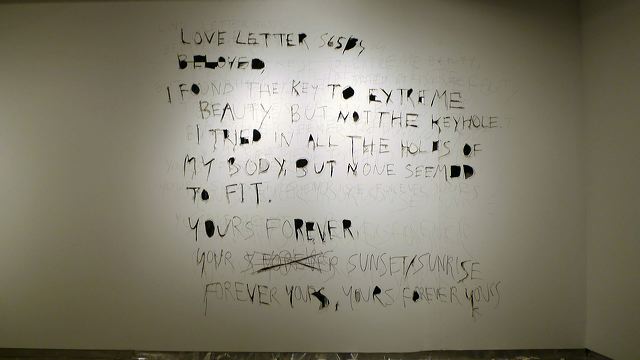 LOVE LETTER 5659
BELOVED,
I FOUND THE KEY TO EXTREME
BEAUTY, BUT NOT THE KEYHOLE.
I TRIED IN ALL THE HOLES OF
MY BODY, BUT NONE SEEMED
TO FIT.
YOURS FOREVER
YOUR SUNSET/SUNRISE
FOREVER YOURS, YOURS FOREVER YOURS